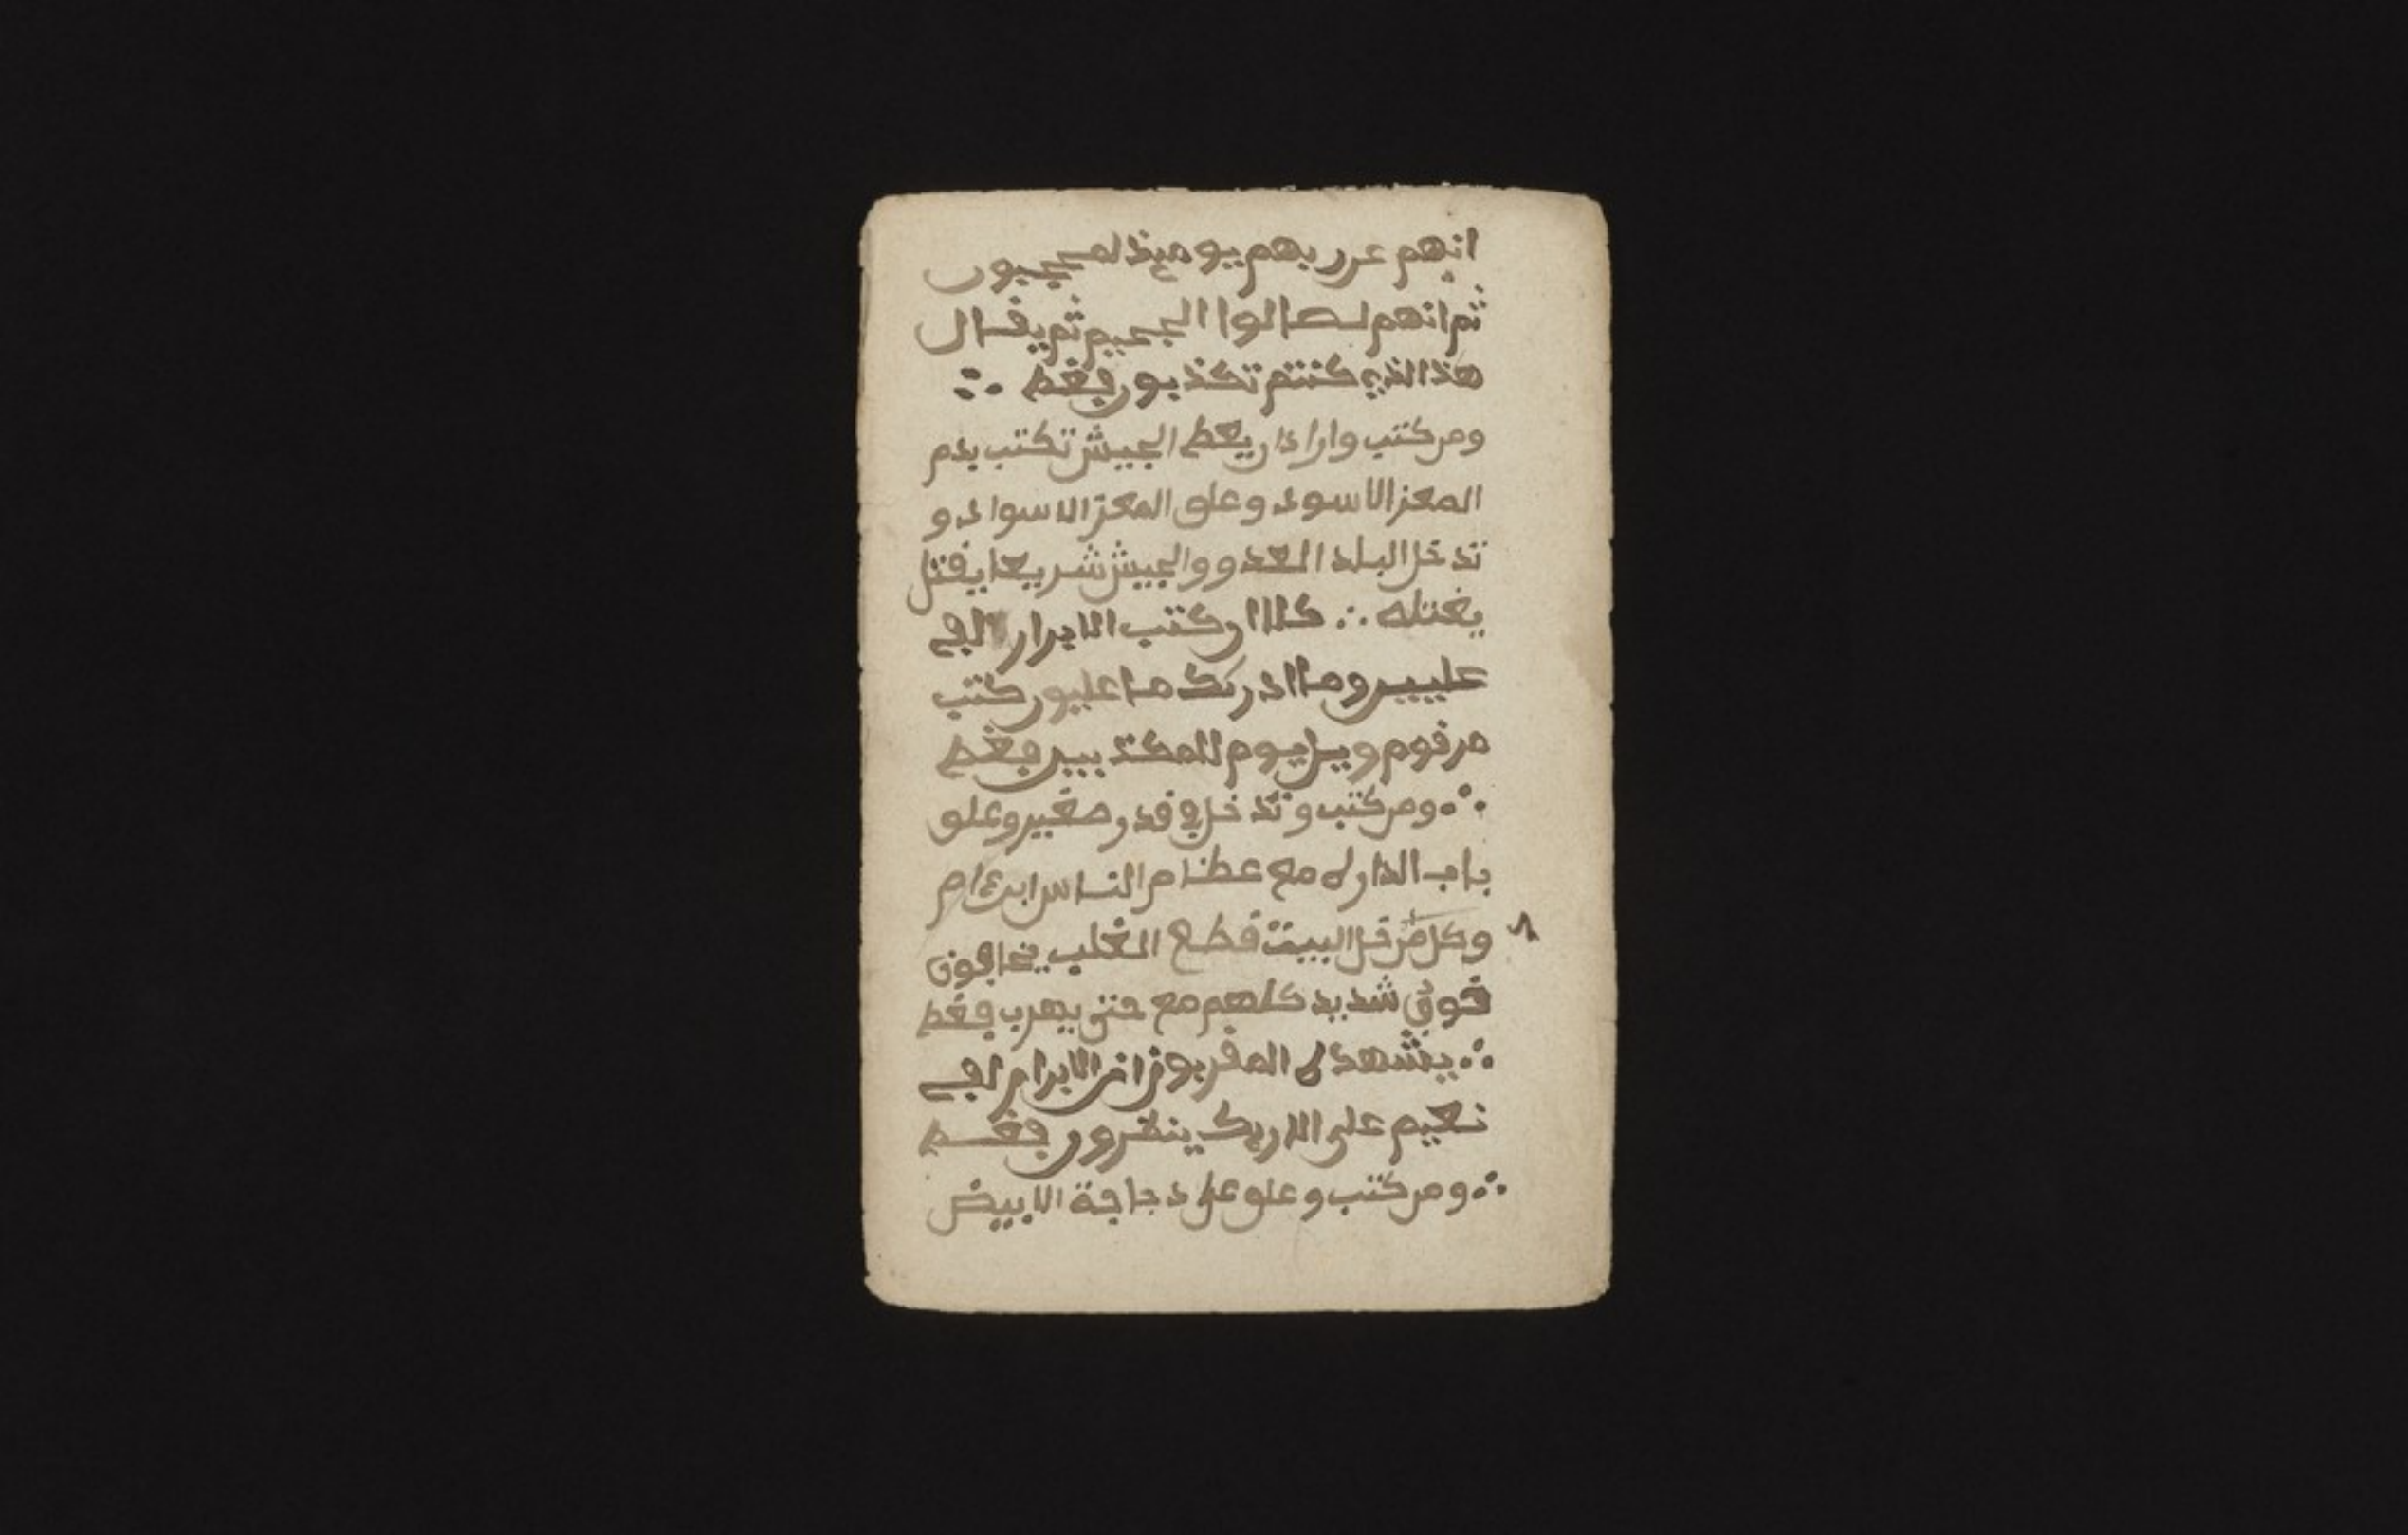 انهم عن ربهم يوميذ لمحجبون
ثم انهم لصالوا الجحيم ثم يقال
هذا الذي كنتم تكذبون فغط ∴
ومن كتب واراد ان يعط الجيش تكتب بدم
المعز الاسود وعلق المعز الاسواد و
تدخل البلد العدو والجيش شريعا يقتل
يغتله ∴ كلا ان كتب الابرار الفي
عليين وما ادريك ما عليون كتب
مرقوم ويل يوم للمكذبين فغط
∴ ومن كتب وتدخل في قدر صغير وعلق
باب الدار له مع عظام الناس ابن ءادم
وكل من دخل البيت قطع الغلب يخافون
خوف شديد كلهم مع حتى يهرب فغط
∴ يشهده المقربون ان الابرار لفي
نعيم على الاريك ينظرون فغط
∴ ومن كتب وعلق على دجاجة الابيض